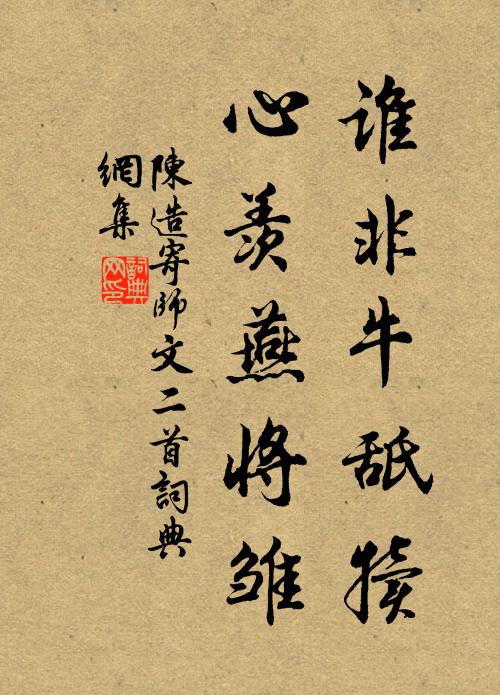 谁非牛舐犊
心羨燕將雏
陳造寄師文二首詞典
網集
詞典
网印